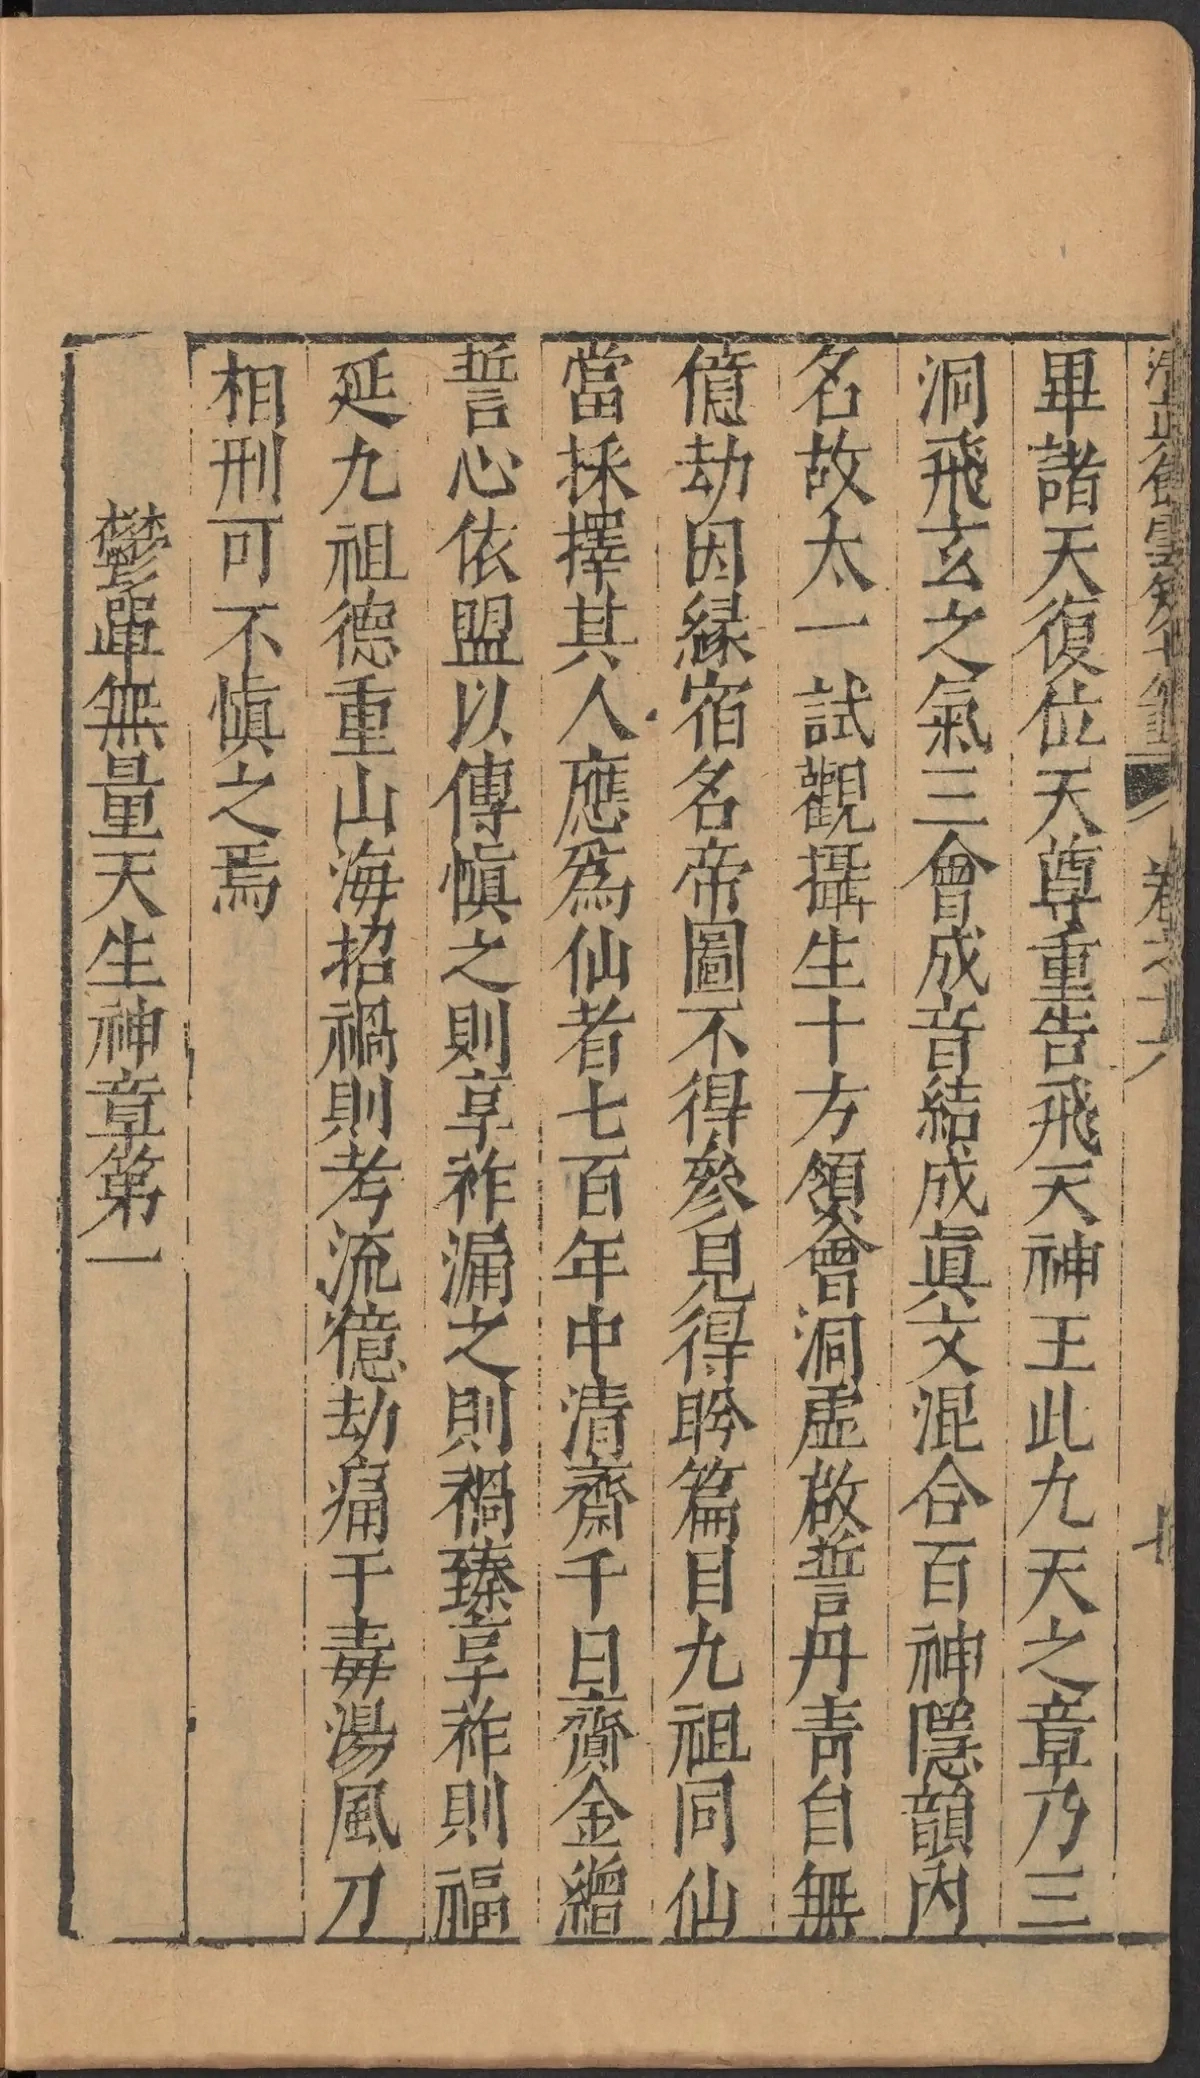 清真舊雲笈七籤 卷之十六 七
畢諸天復位天尊重告飛天神王此九天之章乃三
洞飛玄之氣三會成音結成眞文混合百神隱韻內
名故太一試觀攝生十方領會洞虛啟誓丹青自無
億劫因緣宿名帝圖不得參見得昤篇目九祖同仙
當採擇其人應爲仙者七百年中清齋千日齎金繒
誓心依盟以傳慎之則享祚漏之則禍臻享祚則福
延九祖德重山海招禍則考流億劫痛于毒湯風刀
相刑可不慎之焉
鬱單無量天生神章第一